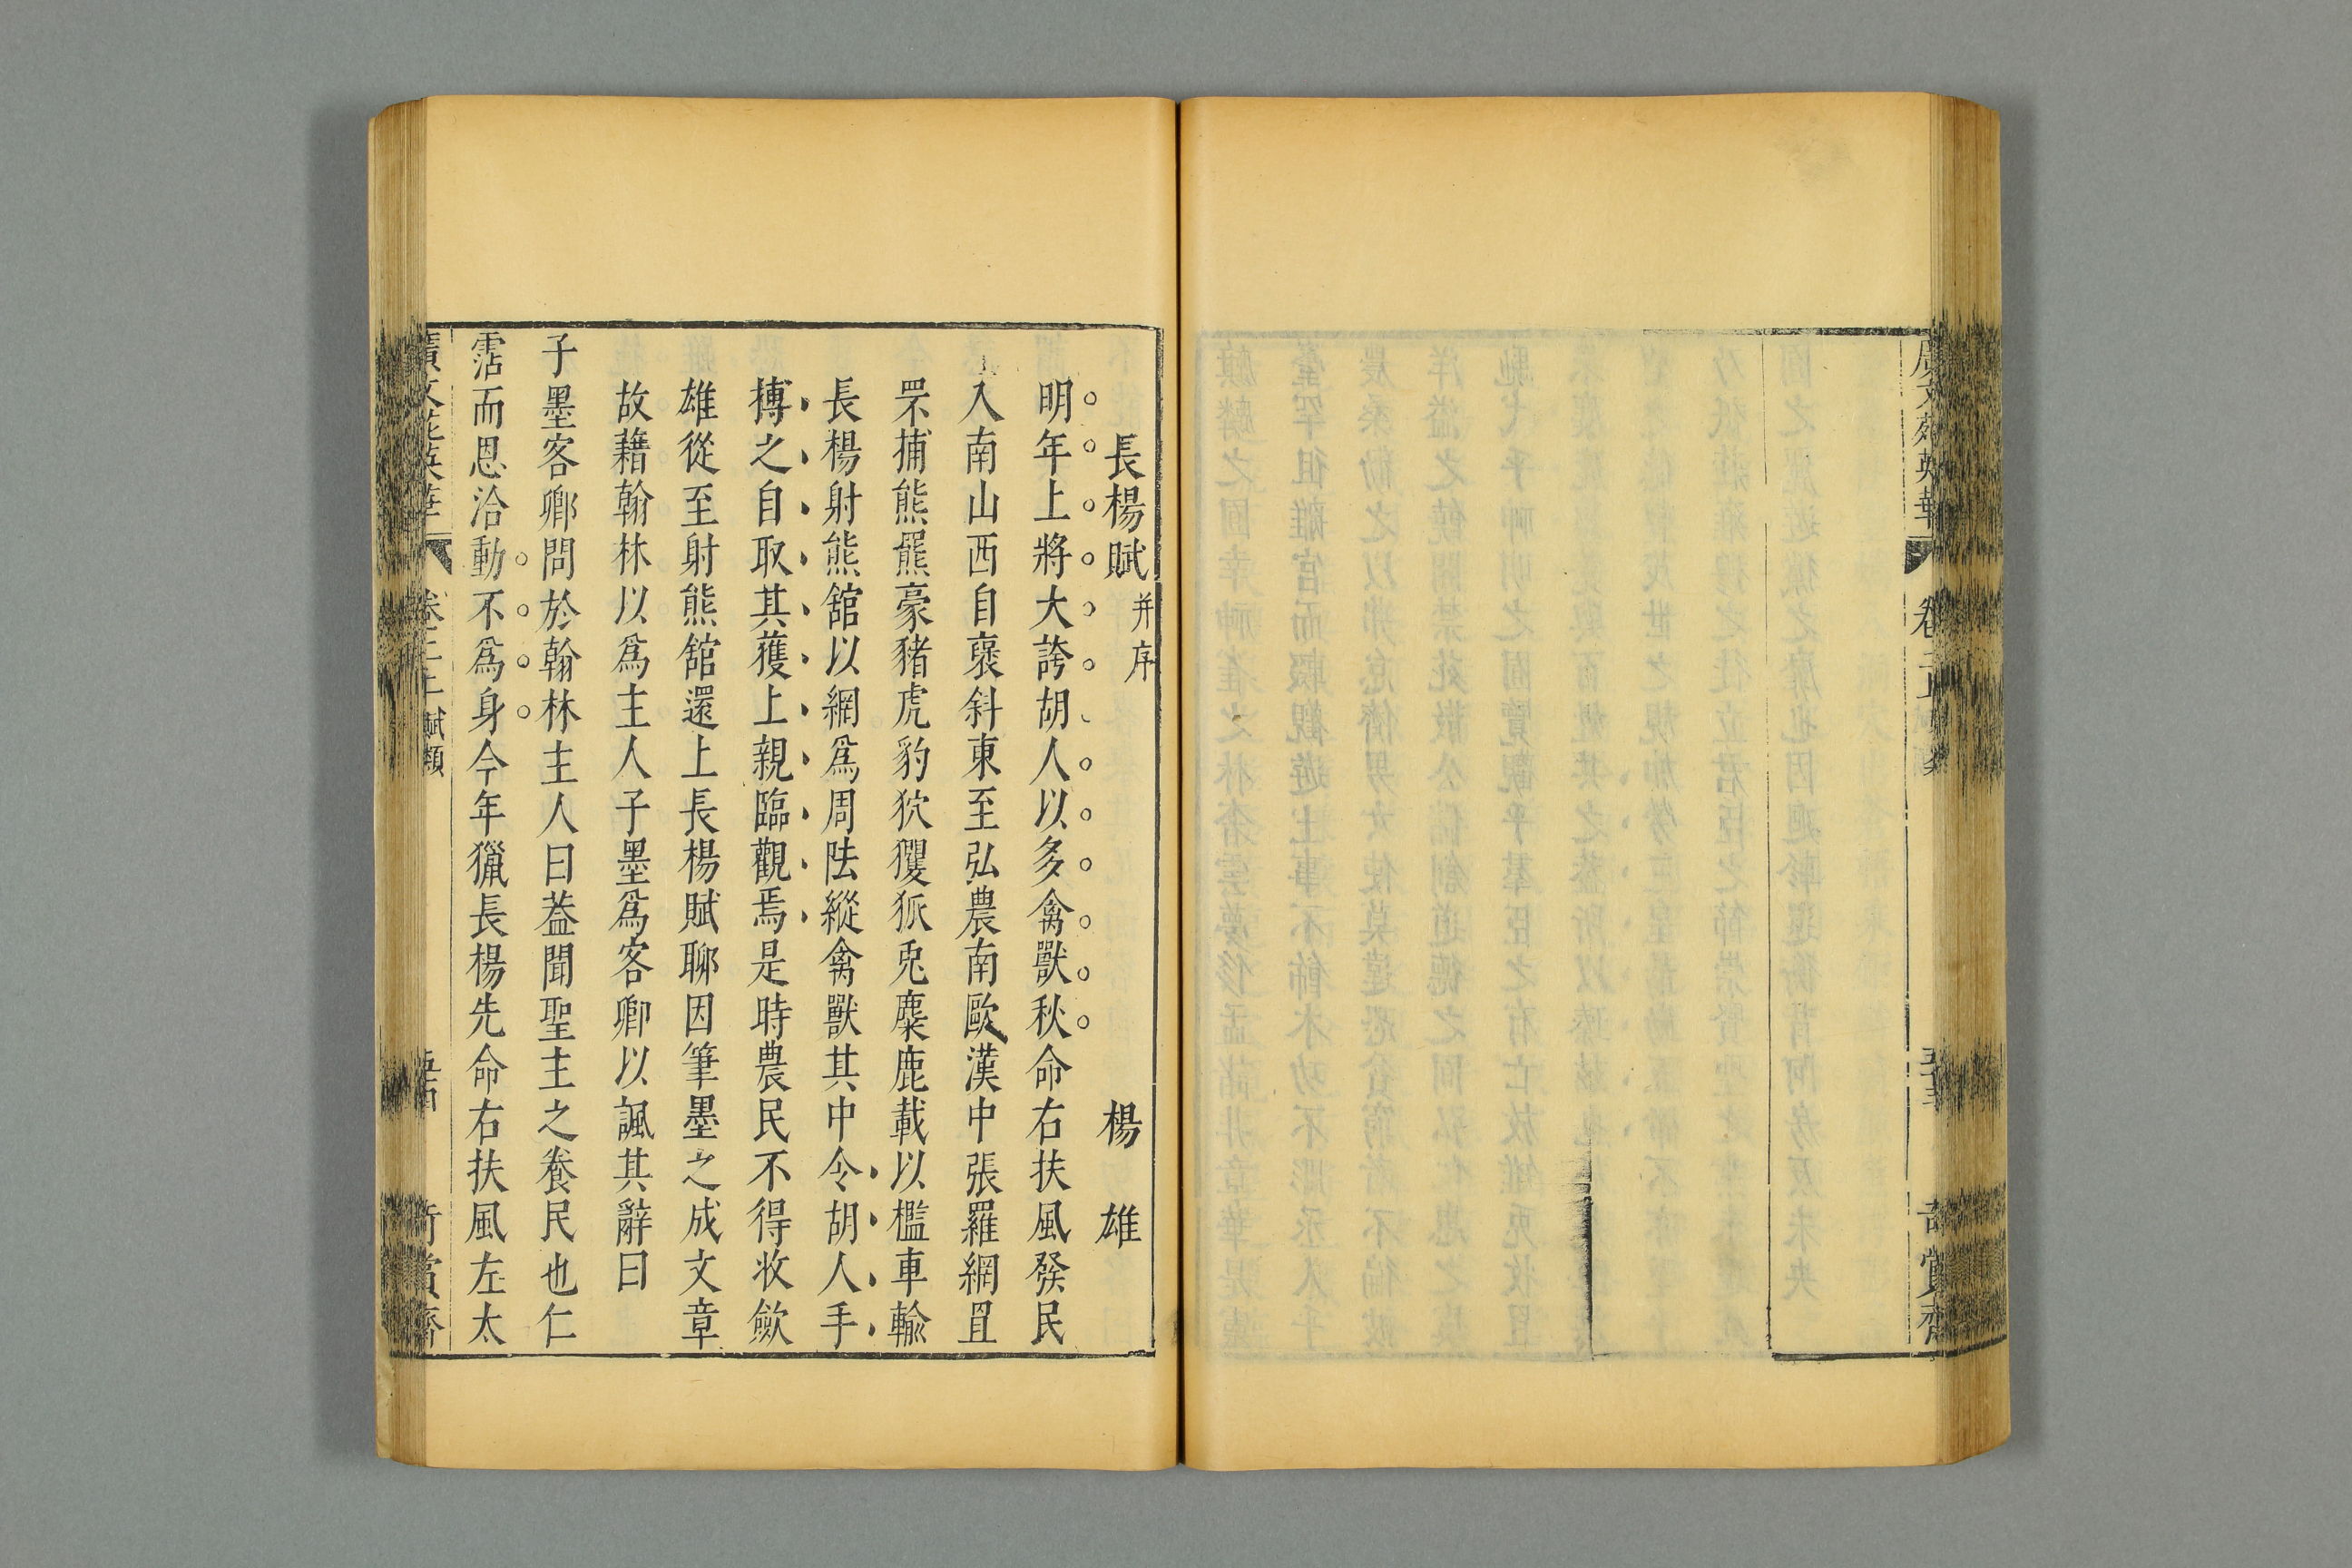 廣文苑英華
奇賞齋
長楊賦 并序
楊雄
明年上將大誇胡人以多禽獸秋命右扶風發民
入南山西自褒斜東至弘農南歐漢中張羅網罝
罘捕熊羆豪豬虎豹狖玃狐兎麋鹿載以檻車輸
長楊射熊舘以網爲周阹縱禽獸其中令胡人手
摶之自取其獲上親臨觀焉是時農民不得收歛
雄從至射熊舘還上長楊賦聊因筆墨之成文章
故藉翰林以爲主人子墨爲客卿以諷其辭曰
子墨客卿問於翰林主人曰葢聞聖主之養民也仁
霑而恩洽動不爲身今年獵長楊先命右扶風左太
廣文苑英華
賦類
五十四
奇賞齋